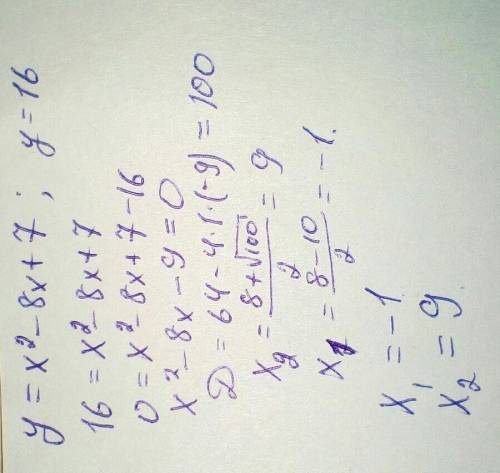 y = x² - 8x + 7 ; y = 16
16 = x² - 8x + 7
0 = x² - 8x + 7 - 16
x² - 8x - 9 = 0
D = 64 - 4·1·(-9) = 100
x₂ = (8 + √100)/2 = 9
x₁ = (8 - 10)/2 = -1.
x₁ = -1
x₂ = 9